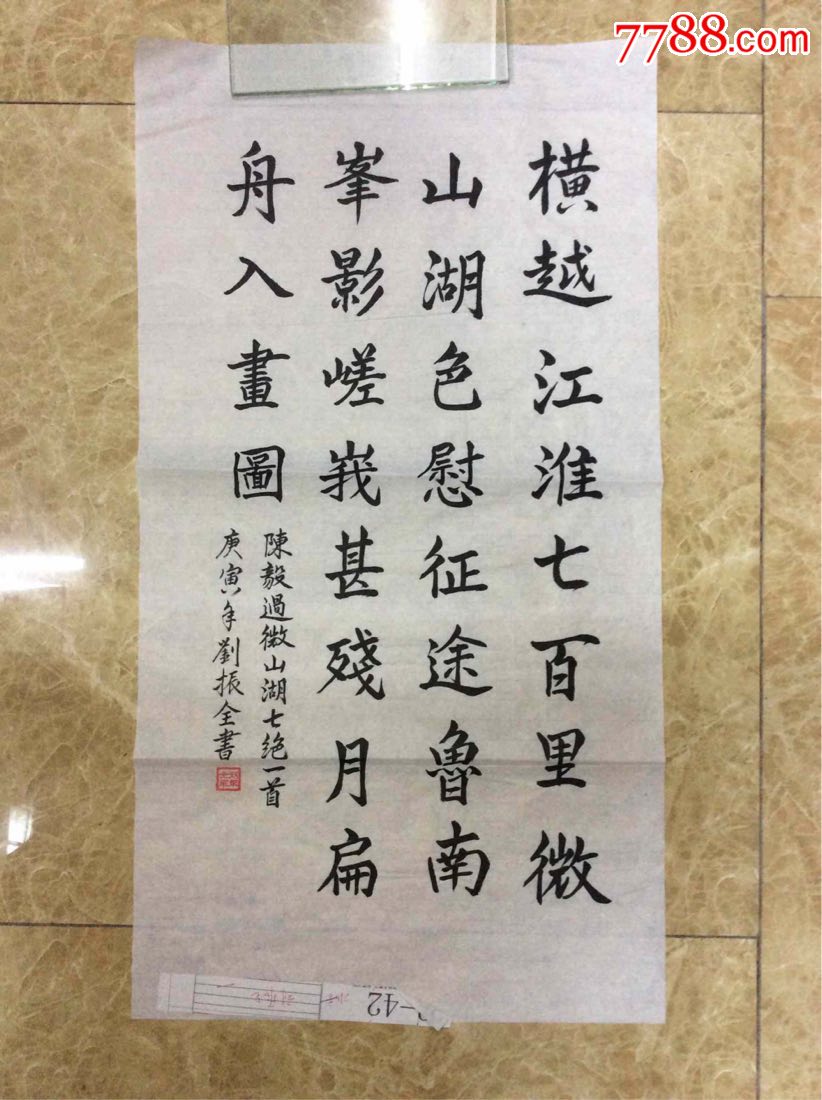 7788.com
橫越江淮七百里微
山湖色慰征途魯南
峯影嵯峩甚殘月扁
舟入畫圖
陳毅過微山湖七绝一首
庚寅年劉振全書
-42